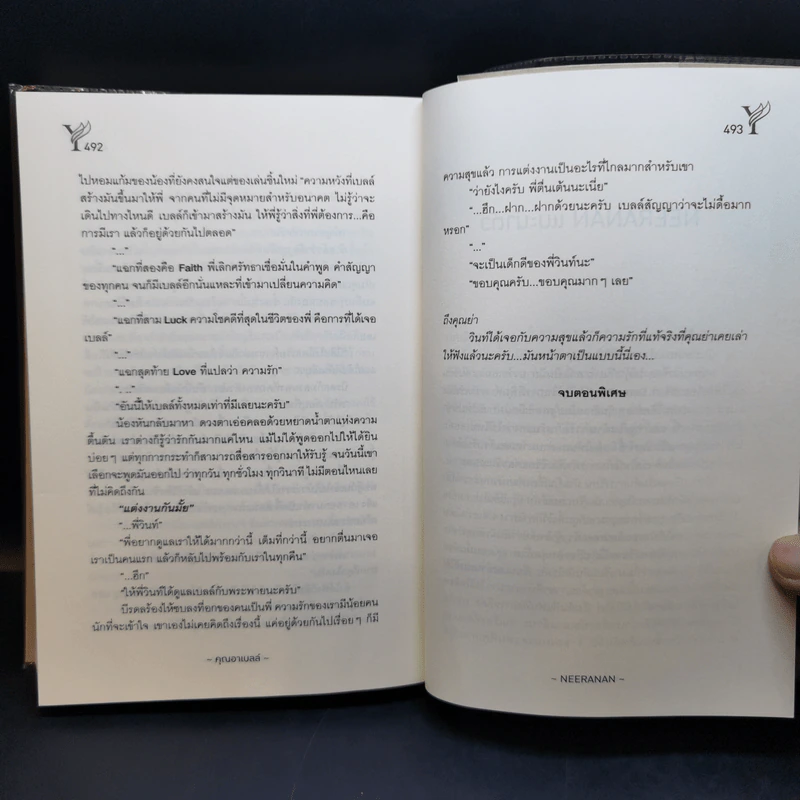 492
ไปหอมแก้มของน้องที่ยังคงสนใจแต่ของเล่นชิ้นใหม่ “ความหวังที่เบลล์
สร้างมันขึ้นมาให้พี่ จากคนที่ไม่มีจุดหมายสำหรับอนาคต ไม่รู้ว่าจะ
เดินไปทางไหนดี เบลล์ก็เข้ามาสร้างมัน ให้พี่รู้ว่าสิ่งที่พี่ต้องการ...คือ
การมีเรา แล้วก็อยู่ด้วยกันไปตลอด”
“...”
“แฉกที่สองคือ Faith พี่เลิกศรัทธาเชื่อมั่นในคำพูด คำสัญญา
ของทุกคน จนก็มีเบลล์อีกนั่นแหละที่เข้ามาเปลี่ยนความคิด”
“...”
“แฉกที่สาม Luck ความโชคดีที่สุดในชีวิตของพี่ คือการที่ได้เจอ
เบลล์”
“...”
“แฉกสุดท้าย Love ที่แปลว่า ความรัก”
“. ..”
“อันนี้ให้เบลล์ทั้งหมดเท่าที่มีเลยนะครับ”
น้องหันกลับมาหา ดวงตาเอ่อคลอด้วยหยาดน้ำตาแห่งความ
ตื้นตัน เราต่างก็รู้ว่ารักกันมากแค่ไหน แม้ไม่ได้พูดออกไปให้ได้ยิน
บ่อยๆ แต่ทุกการกระทำก็สามารถสื่อสารออกมาให้รับรู้ จนวันนี้เขา
เลือกจะพูดมันออกไป ว่าทุกวัน ทุกชั่วโมง ทุกวินาที ไม่มีตอนไหนเลย
ที่ไม่คิดถึงกัน
“แต่งงานกันมั้ย”
“...พี่วินท์”
“พี่อยากดูแลเราให้ได้มากกว่านี้ เต็มที่กว่านี้ อยากตื่นมาเจอ
เราเป็นคนแรก แล้วก็หลับไปพร้อมกับเราในทุกคืน”
“...ฮึก”
“ให้พี่วินท์ได้ดูแลเบลล์กับพระพายนะครับ”
บีรดลร้องไห้ซบลงที่อกของคนเป็นพี่ ความรักของเรามีน้อยคน
นักที่จะเข้าใจ เขาเองไม่เคยคิดถึงเรื่องนี้ แค่อยู่ด้วยกันไปเรื่อยๆ ก็มี
~ คุณอาเบลล์ ~
493
ความสุขแล้ว การแต่งงานเป็นอะไรที่ไกลมากสำหรับเขา
“ว่ายังไงครับ พี่ตื่นเต้นนะเนี่ย”
“...ฮึก...ฝาก...ฝากด้วยนะครับ เบลล์สัญญาว่าจะไม่ดื้อมาก
หรอก”
“...”
“จะเป็นเด็กดีของพี่วินท์นะ”
“ขอบคุณครับ...ขอบคุณมากๆ เลย”
ถึงคุณย่า
วินท์ได้เจอกับความสุขแล้วก็ความรักที่แท้จริงที่คุณย่าเคยเล่า
ให้ฟังแล้วนะครับ...มันหน้าตาเป็นแบบนี้นี่เอง...
จบตอนพิเศษ
~ NEERANAN ~